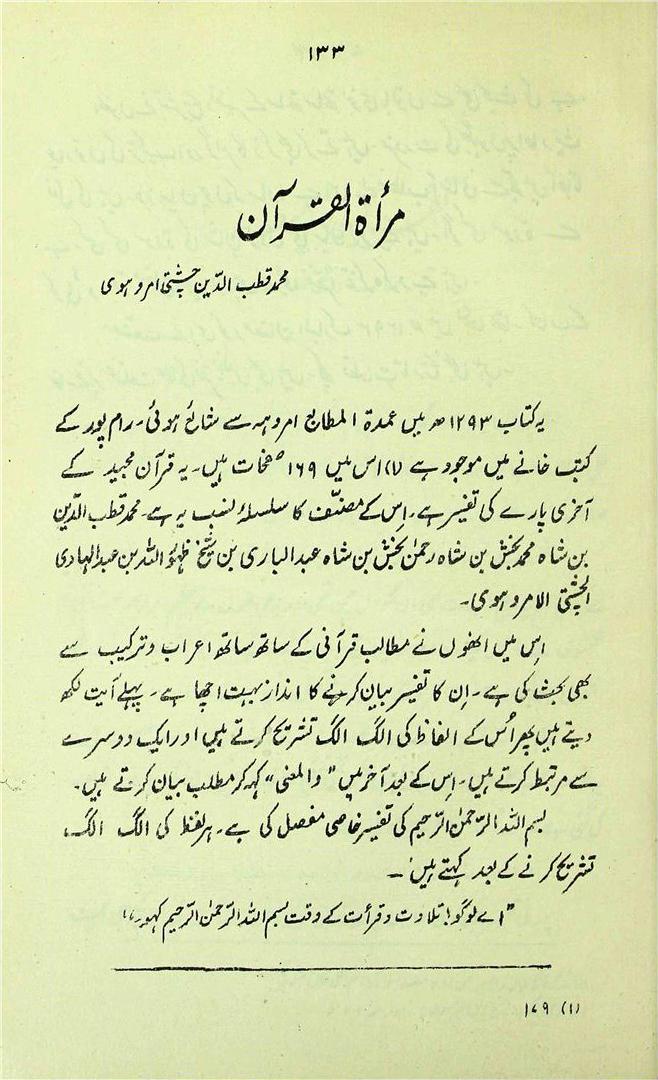 ۱۳۳
مرأۃ القرآن
محمد قطب الدّین چشتی امروہوی
یہ کتاب ۱۲۹۳ھ میں عمدۃ المطابع امروہہ سے شائع ہوئی۔ رام پور کے
کتب خانے میں موجود ہے (۱) اس میں ۱۶۹ صفحات ہیں۔ یہ قرآن مجید کے
آخری پارے کی تفسیر ہے۔ اِس کے مصنّف کا سلسلۂ نسب یہ ہے۔ محمد قطب الدّین
بن شاہ محمد بخش بن شاہ رحمٰن بخش بن شاہ عبد الباری بن شیخ ظہور اللہ بن عبد الہادی
الچشتی الامروہوی۔
اِس میں انھوں نے مطالب قرآنی کے ساتھ ساتھ اعراب و ترکیب سے
بھی بحث کی ہے۔ اِن کا تفسیر بیان کرنے کا انداز بہت اچھا ہے۔ پہلے آیت لکھ
دیتے ہیں پھر اُس کے الفاظ کی الگ الگ تشریح کرتے ہیں اور ایک دوسرے
سے مرتبط کرتے ہیں۔ اِس کے بعد آخر میں "والمعنی" کہہ کر مطلب بیان کرتے ہیں۔
بسم اللہ الرّحمٰن الرّحیم کی تفسیر خاصی مفصل کی ہے۔ ہر لفظ کی الگ الگ،
تشریح کرنے کے بعد کہتے ہیں۔
"اے لوگو! تلاوت و قرأت کے وقت بسم اللہ الرّحمٰن الرّحیم کہو۔"
(۱) ۱۷۹